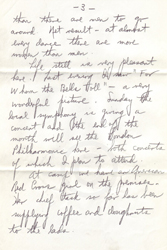 - 3 -
than there are men to go
around. Net result - at almost
every dance there are more
women than men.
Life still is very pleasant
here. Last evening I saw "For
Whom the Bells Toll" - a very
wonderful picture. Sunday the
local symphony is giving a
concert and the end of the
month will see the London
Philharmonic here - both concerts
of which I plan to attend.
At camp we have an American
Red Cross girl on the premises.
Her chief task so far has been
supplying coffee and doughnuts
to the lads.